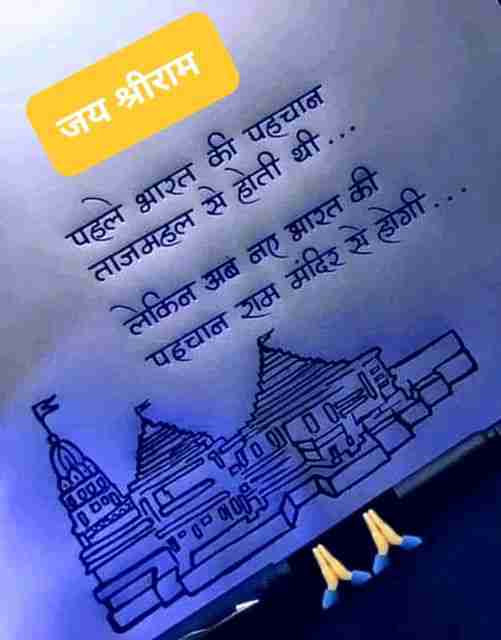 जय श्रीराम
पहले भारत की पहचान
ताजमहल से होती थी ...
लेकिन अब नए भारत की
पहचान राम मंदिर से होगी ...